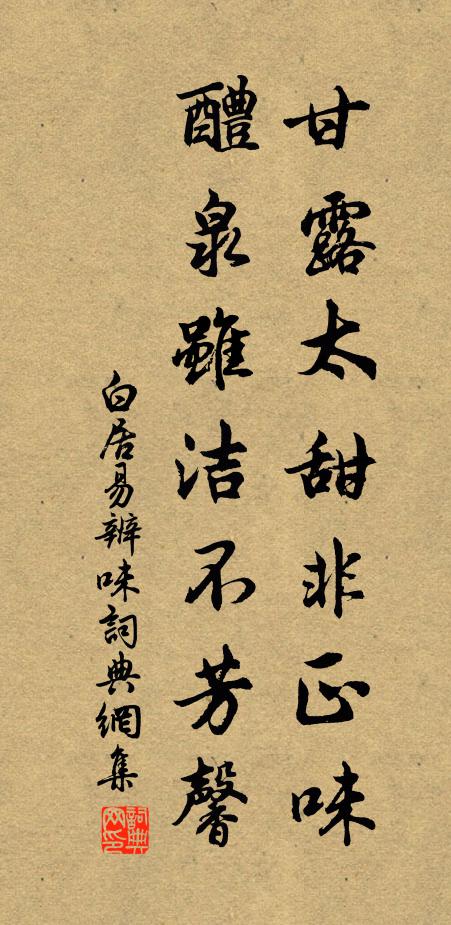 甘露太甜非正味
醴泉雖洁不芳馨
白居易辨味詞典網集
詞典网印